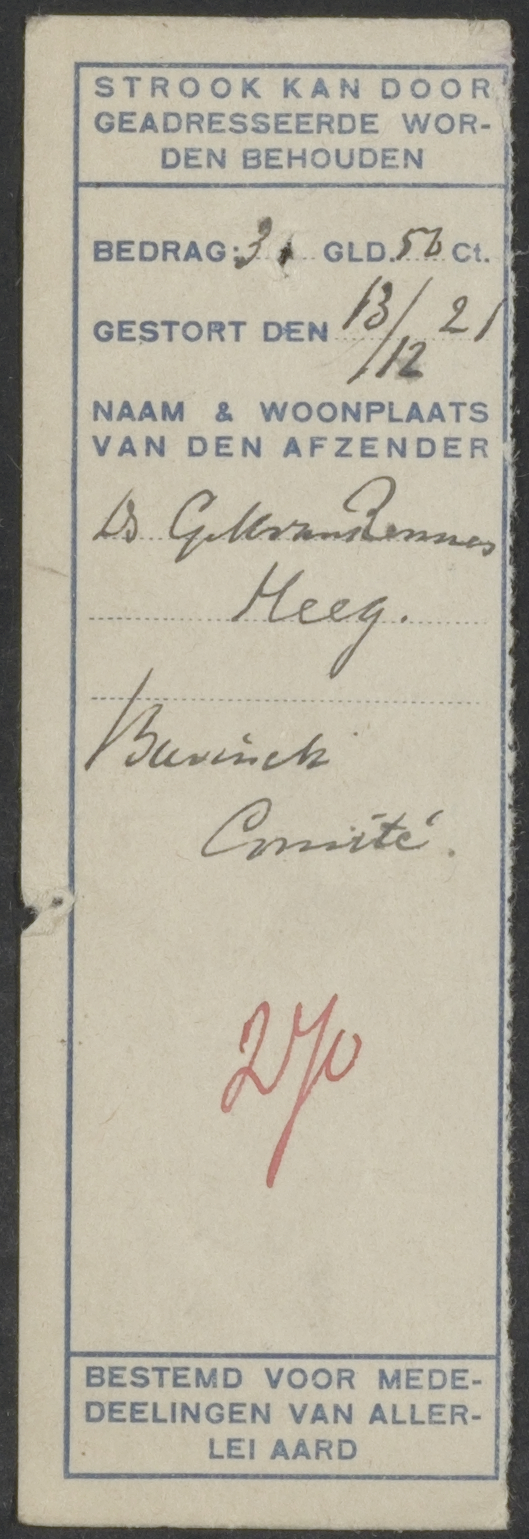 STROOK KAN DOOR
GEADRESSEERDE WOR-
DEN BEHOUDEN
BEDRAG: 3 GLD. 50 Ct.
GESTORT DEN 13/12 21
NAAM & WOONPLAATS
VAN DEN AFZENDER
Ds G. M. van Rennes
Heeg.
Bavinck
Comité.
270
BESTEMD VOOR MEDE-
DEELINGEN VAN ALLER-
LEI AARD